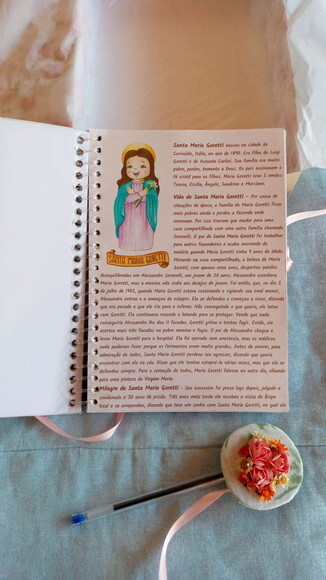 Santa Maria Goretti nasceu na cidade de
Corinaldo, Itália, no ano de 1890. Era filha de Luigi
Goretti e de Assunta Carlini. Sua família era muito
pobre, porém, temente a Deus. Os pais ensinavam a
fé cristã para os filhos. Maria Goretti teve 5 irmãos:
Teresa, Ersília, Ângelo, Sandrino e Marciano.
Vida de Santa Maria Goretti – Por causa de
situações da época, a família de Maria Goretti ficou
mais pobres ainda e perdeu a fazenda onde
moravam. Por isso tiveram que mudar para uma
casa compartilhada com uma outra família chamada
Serenelli. O pai de Santa Maria Goretti foi trabalhar
para outros fazendeiros e acaba morrendo de
malária quando Maria Goretti tinha 9 anos de idade.
Morando na casa compartilhada, a beleza de Maria
Goretti, com apenas onze anos, despertou paixões
SANTA MARIA GORETTI
desequilibradas em Alessandro Serenelli, um jovem de 20 anos. Alessandro assediava
Maria Goretti, mas a menina não cedia aos desejos do jovem. Foi então que, no dia 5
de julho de 1902, quando Maria Goretti estava costurando e vigiando sua irmã menor,
Alessandro entrou e a ameaçou de estupro. Ela se defendeu e começou a rezar, dizendo
que era pecado e que ele iria para o inferno. Não conseguindo o que queria, ele lutou
com Goretti. Ela continuava rezando e lutando para se proteger. Vendo que nada
conseguiria Alessandro lhe deu 11 facadas. Goretti gritou e tentou fugir. Então, ele
acertou mais três facadas na pobre menina e fugiu. O pai de Alessandro chegou e
levou Maria Goretti para o hospital. Ela foi operada sem anestesia, mas os médicos
nada puderam fazer porque os ferimentos eram muito grandes. Antes de morrer, para
admiração de todos, Santa Maria Goretti perdoou seu agressor, dizendo que queria
encontrar com ele no céu. Disse que ele tentou estuprá-la várias vezes, mas que ela se
defendeu sempre. Para a comoção de todos, Maria Goretti faleceu no outro dia, olhando
para uma pintura da Virgem Maria.
Milagre de Santa Maria Goretti – Seu assassino foi preso logo depois, julgado e
condenado a 30 anos de prisão. Três anos mais tarde ele recebeu a visita do Bispo
local e se arrependeu, dizendo que teve um sonho com Santa Maria Goretti, no qual ela